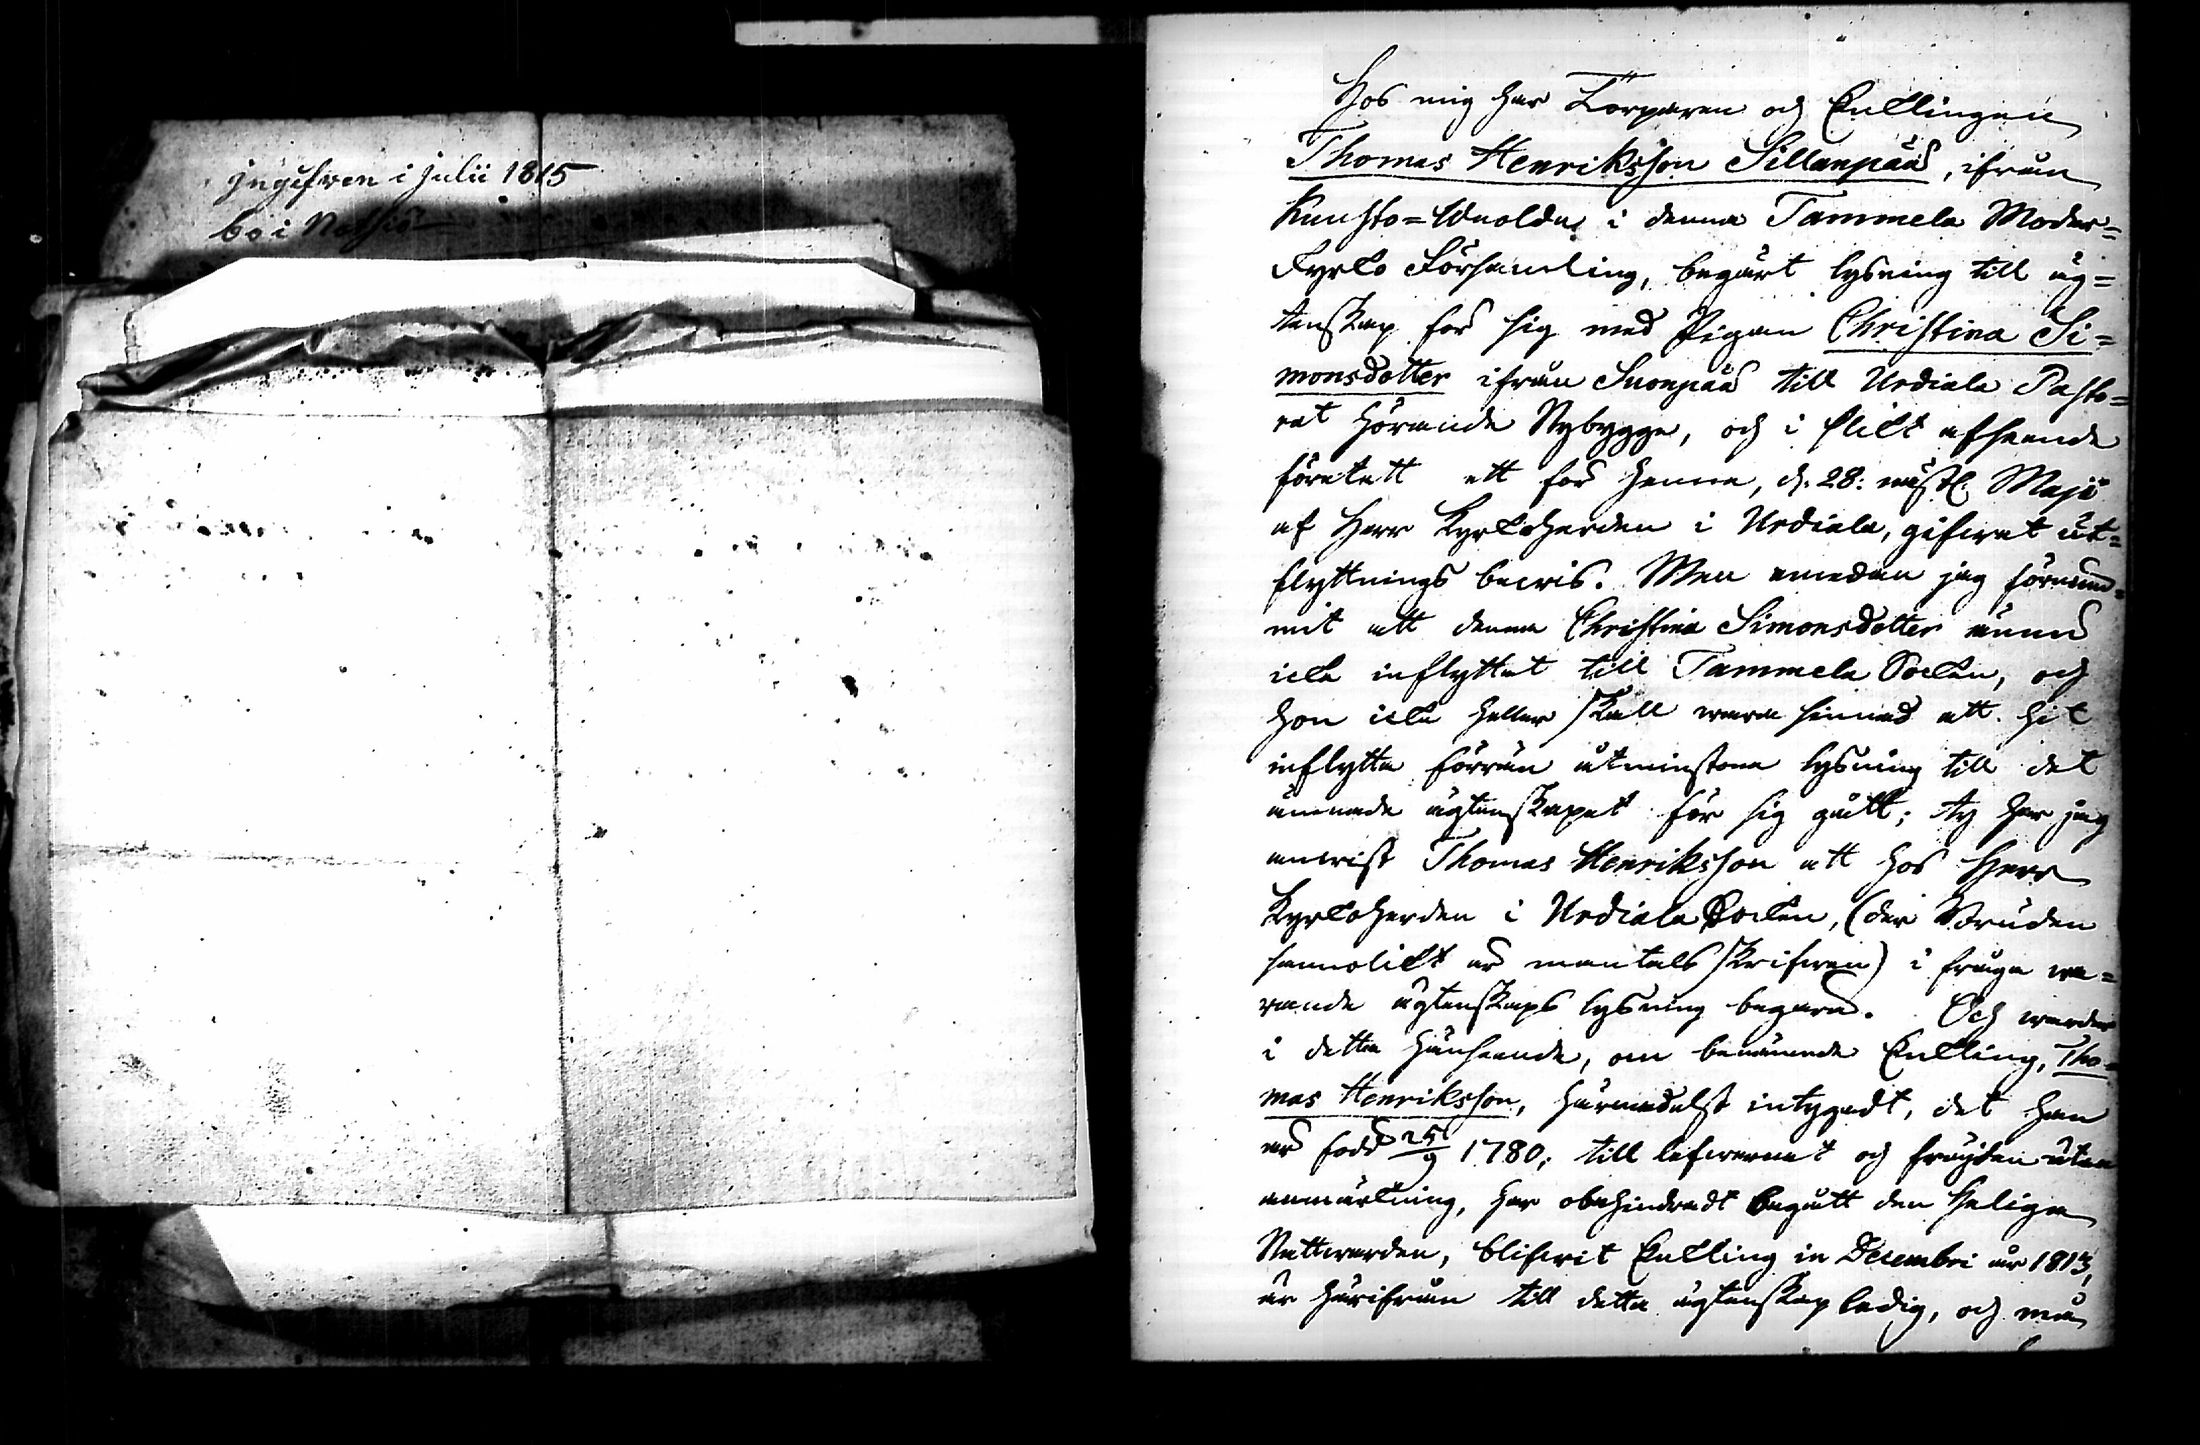 ingifven i Julii 1815
bo i
Hos mig har Torparen och Enklingen
Thomas Henriksson Sillanpää, ifrån
Kuusto=Wuolda i denna Tammela Moder=
kyrko Församling, begärt lysning till äg=
tenskap för sig med Pigan Christina Si=
monsdotter ifrån Suonpää till Urdiala Pasto=
rat hörande Nybygge, och i slikt afseende
företett ett för henne, d. 28: nästl. Maji
af Herr Kyrkoherden i Urdiala, gifwet ut=
flyttnings bewis. Men emedan jag förnum=
mit att denna Christina Simonsdotter ännu
icke inflyttat till Tammela Sockn, och
hon icke heller skall wara sinnad att hit
inflytta förrän åtminstone lysning till det
ämnade ägtenskapet för sig gått; ty har jag
anwist Thomas Henriksson att hos Herr
Kyrkoherden i Urdiala Sockn, (der Bruden
sannolikt är mantals skrifwen) i fråga wa=
rande ägtenskaps lysning begära. Och warder
i detta hänseende, om benämnde Enkling, Tho=
mas Henriksson, härmedelst intygadt, det han
är född 25/9 1780; till lefwernet och frägden utan
anmärkning, har obehindradt begått den Heliga
Nattwarden, blifwit Enkling in Decembri år 1813,
är härifrån till detta ägtenskap ledig, och må